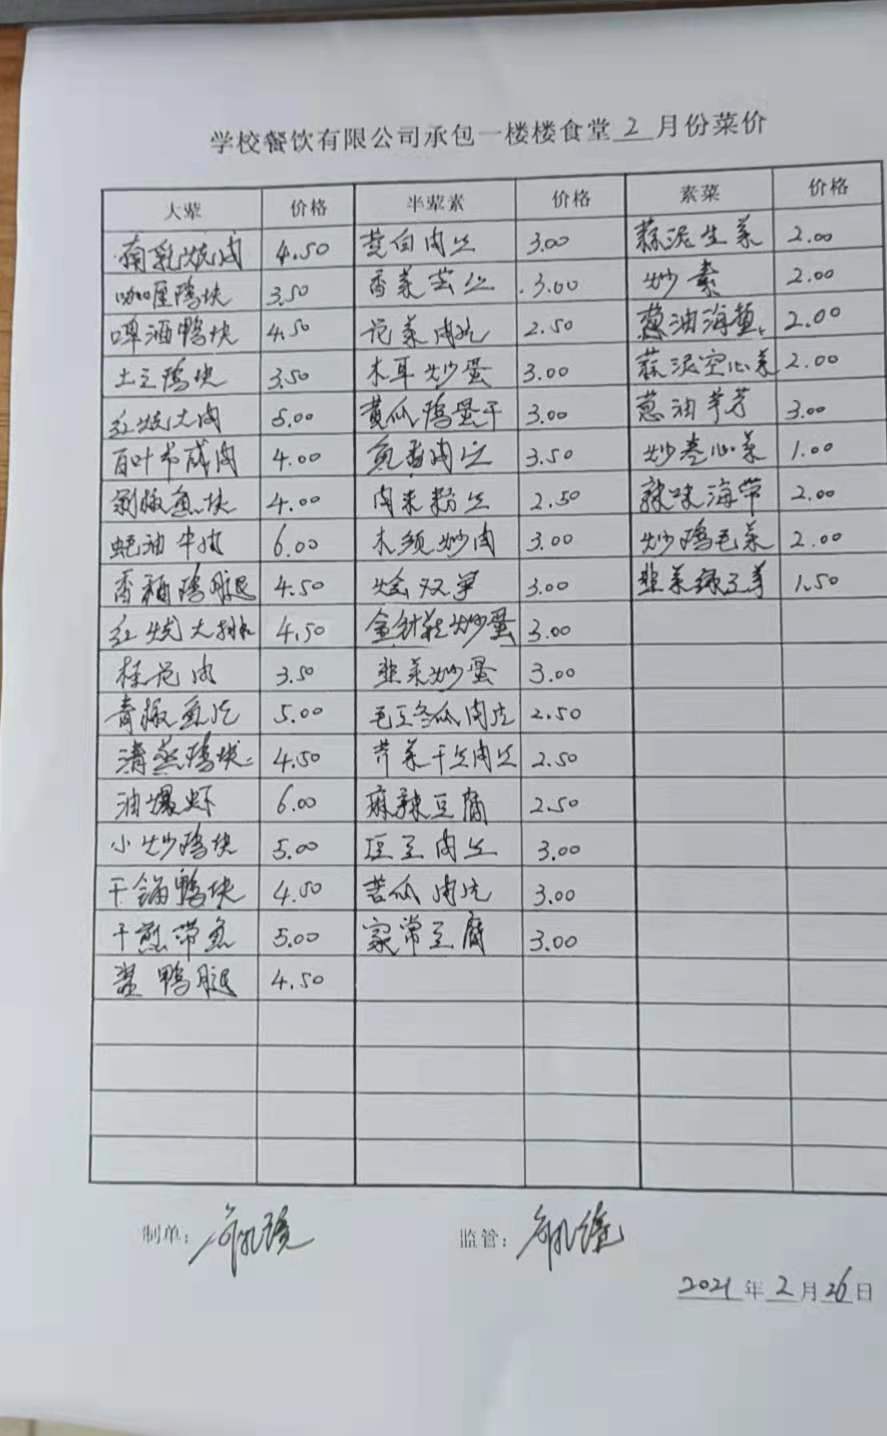 学校餐饮有限公司承包一楼楼食堂2月份菜价
大荤 价格 半荤素 价格 素菜 价格
腐乳烧肉 4.50 茭白肉丝 3.00 蒜泥生菜 2.00
咖喱鸡块 3.50 香菜芸丝 3.00 炒素 2.00
啤酒鸭块 4.50 花菜肉片 2.50 葱油海蜇 2.00
土豆鸡块 3.50 木耳炒蛋 3.00 蒜泥空心菜 2.00
红烧大肉 5.00 黄瓜鸡蛋干 3.00 葱油芋艿 3.00
百叶节咸肉 4.00 鱼香肉丝 3.50 炒卷心菜 1.00
剁椒鱼块 4.00 肉末粉丝 2.50 辣味海带 2.00
蚝油牛肉 6.00 木须炒肉 3.00 炒鸡毛菜 2.00
香稻鸡腿 4.50 烩双笋 3.00 韭菜绿豆芽 1.50
红烧大排 4.50 金针菇炒蛋 3.00
桂花肉 3.50 韭菜炒蛋 3.00
青椒鱼片 5.00 毛豆冬瓜肉片 2.50
清蒸鸡块 4.50 芹菜干丝肉丝 2.50
油爆虾 6.00 麻辣豆腐 2.50
小炒鸡块 5.00 豇豆肉丝 3.00
干锅鸭块 4.50 苦瓜肉片 3.00
干煎带鱼 5.00 家常豆腐 3.00
酱鸭腿 4.50
制单: 监管:
2021年2月26日